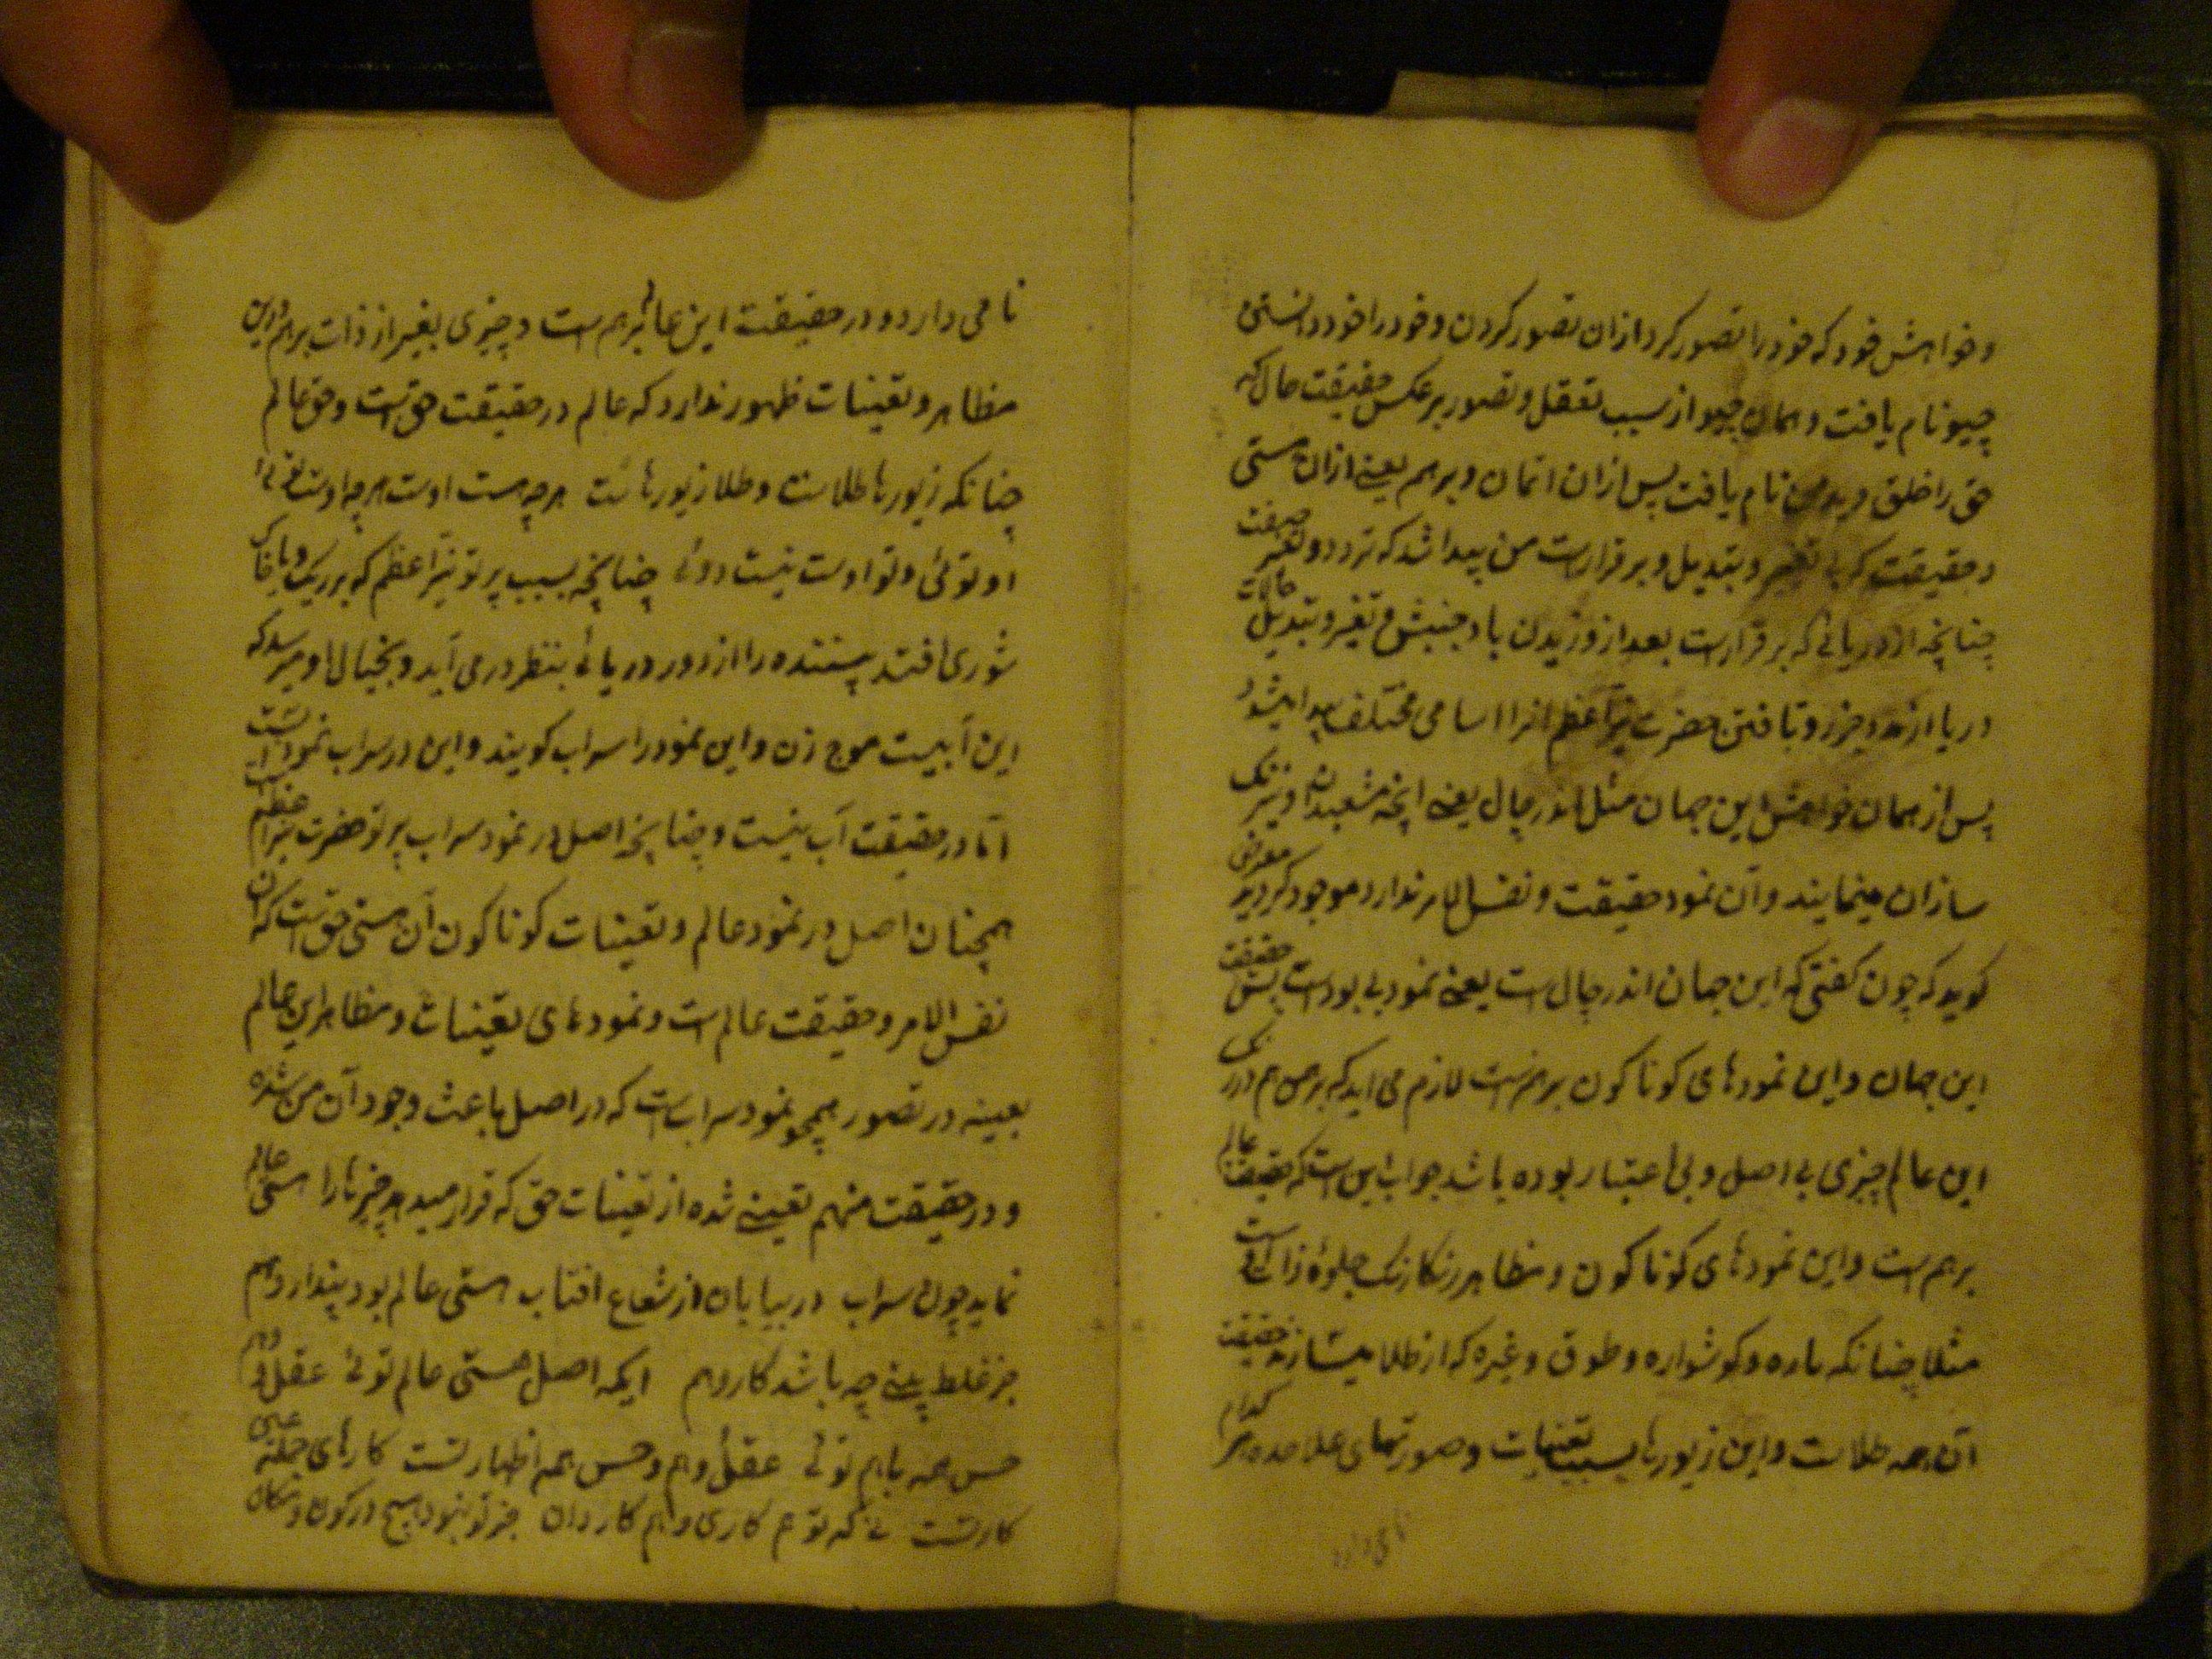 و خواهش خود که خود را تصور کرد ازان تصور کردن و خود را خود دانستن
جیو نام یافت و همان جیو از سبب تعقل و تصور بر عکس حقیقت حال که
حق را خلق دیدن نام یافت پس ازان اتمان و برهم یعنے ازان هستی
و حقیقت که بے تغیر و تبدیل و برقرارست من پیدا شد که تردد و تغیر صفت
چنانچه از دریائے که برقرارست بعد از وزیدن باد جنبش و تغیر و تبدیل حالات
دریا از مد و جزر و تافتن حضرت نیر اعظم انرا اسامی مختلف پیدا میشود
پس از همان خواهش این جهان مثل اندرجال یعنے انچه مشعبدان و نیرنک
سازان مینمایند و آن نمود حقیقت و نفس الامر ندارد موجود کردید معرض
کوید که چون کفتی که این جهان اندرجال ست یعنے نمود بے بودست پس حقیقت
این جهان و این نمودهای کوناکون برهم ست لازم می اید که برهم هم در رنک
این عالم چیزی بے اصل و بی اعتبار بوده باشد جواب این ست که حقیقت عالم
برهم ست و این نمودهای کوناکون و مظاهر رنکارنک جلوهٔ ذات اوست
مثلا چنانکه یاره و کوشواره و طوق و غیره که از طلا میسازند حقیقت
آن همه طلاست و این زیورها بسبب تعینات و صورتهای علاحده هر کدام
نامی دارد
نامی دارد و در حقیقت این عالم برهم ست و چیزی بغیر از ذات برهم درین
مظاهر و تعینات ظهور ندارد که عالم در حقیقت حق ست و حق عالم
چنانکه زیورها طلاست و طلا زیورهاست هرچه هست اوست هرچه اوست توئی
او توئی و تو اوست نیست دوئے چنانچه بسبب پرتو نیر اعظم که بر ریک و یا خاک
شوری افتد بیننده را از دور دریائے بنظر در می آید و بخیال او میرسد که
این آبیست موج زن و این نمود را سراب کویند و این در سراب نمود آبست
اما در حقیقت آب نیست و چنانچه اصل در نمود سراب پرتو حضرت نیر اعظم است
همچنان اصل در نمود عالم و تعینات کوناکون آن هستی حق ست که آن
نفس الامر و حقیقت عالم ست و نمودهای تعینات و مظاهر این عالم
بعینه در تصور همچو نمود سراب ست که در اصل باعث وجود آن من شده
و در حقیقت منهم تعینے شده از تعینات حق که قرار میدهد چیزها را هستی عالم
نماید چون سراب در بیابان از شعاع افتاب هستی عالم بود پندار وهم
جز غلط بینے چه باشد کار وهم ایکه اصل هستی عالم توئے عقل و وهم
حس همه باهم توئے عقل و وهم و حس همه اظهار تست کارهای جمله عالم
کار تست نے که تو هم کاری و هم کاردان جز تو نبود هیچ در کون و مکان